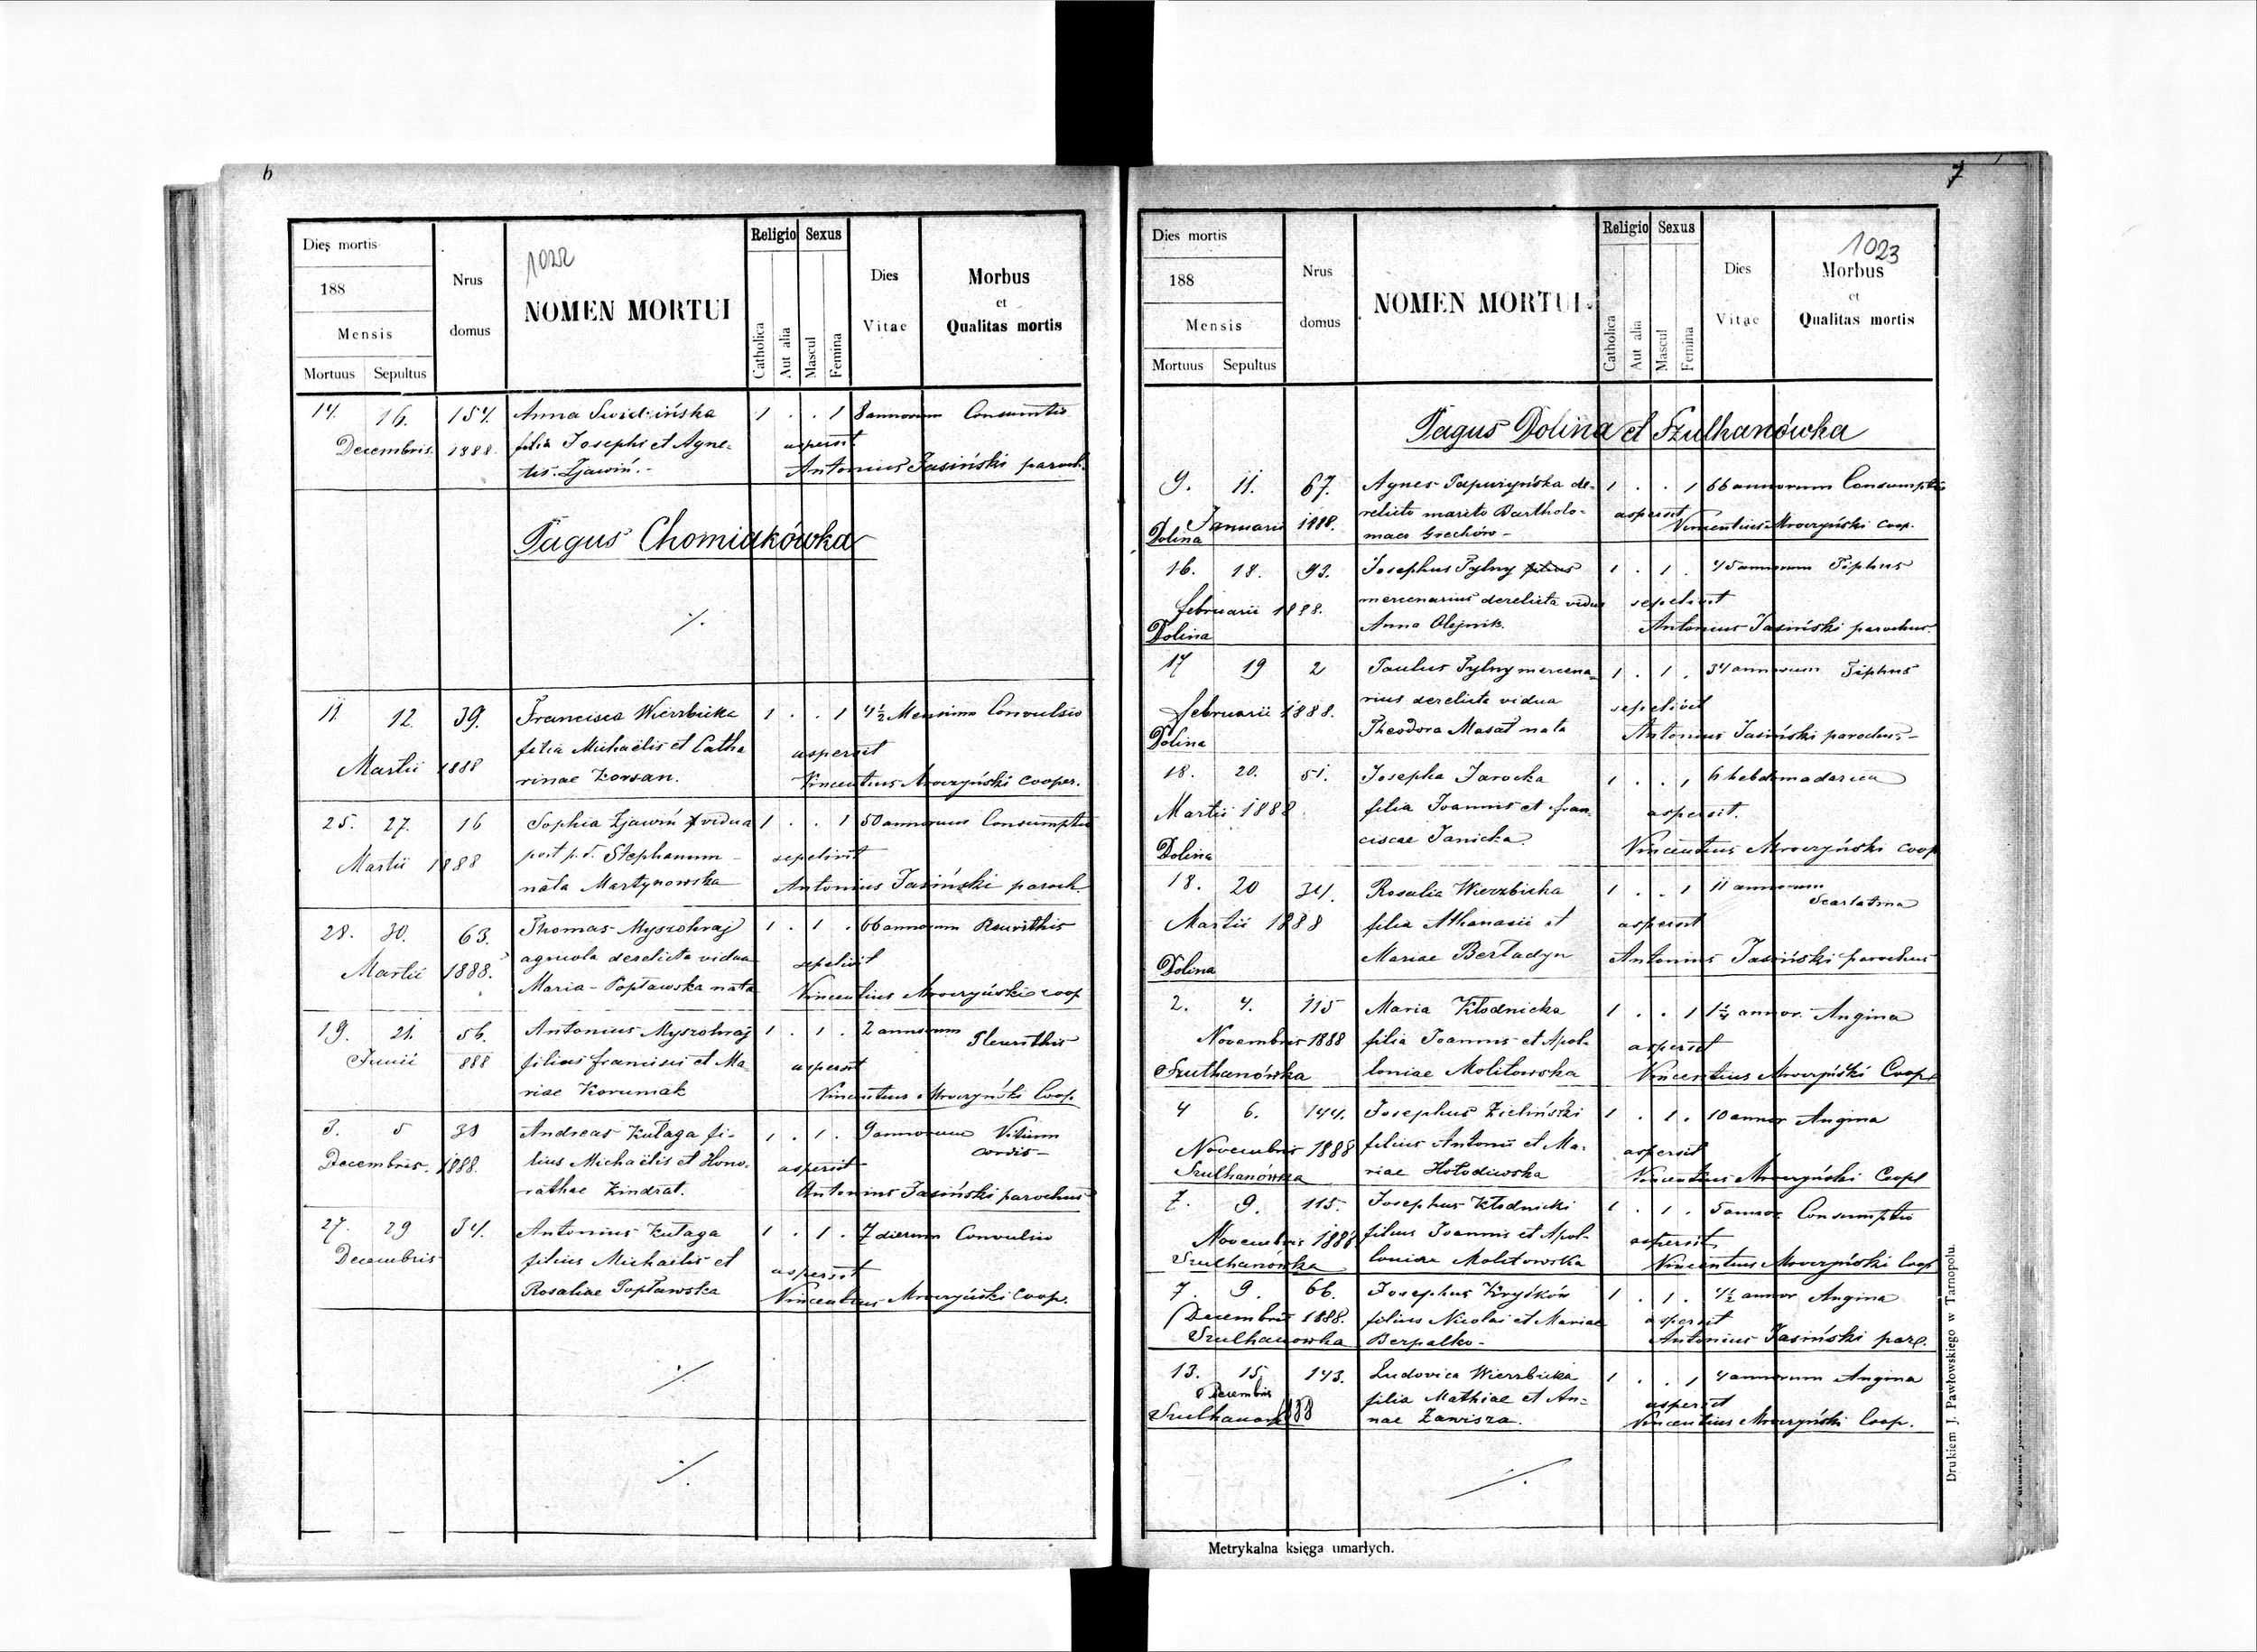 6
Dies mortis
188
Mensis
Mortuus Sepultus
Nrus
domus
1022
NOMEN MORTUI
Religio Sexus
Catholica
Aut alia
Mascul
Femina
Dies
Vitae
Morbus
et
Qualitas mortis
14. 16. 154. Anna Swidzińska 1 . . 1 8 annorum Consumtio
Decembris 1888. filia Josephi et Agne- aspersit
tis Zjawiń.- Antonius Jasiński paroch.
Pagus Chomiakówka
11. 12. 39. Francisca Wierzbicka 1 . . 1 4½ Mensium Convulsio
filia Michaëlis et Catha aspersit
Martii 1888 rinae Korsan. Vincentius Mroczyński cooper.
25. 27. 16 Sophia Zjawiń vidua 1 . . 1 50 annorum Consumptio
Martii 1888 post p. d. Stephanum sepelivit
nata Martynowska Antonius Jasiński paroch
28. 30. 63. Thomas Myszohraj 1 . 1 . 66 annorum
Martii 1888. agricola derelicta vidua sepelivit
Maria Popławska nata Vincentius Mroczyński coop
19. 21. 56. Antonius Myszohraj 1 . 1 . 2 annorum Pleurithis
Junii 888 filius Francisci et Ma aspersit
riae Koruniak Vincentius Mroczyński Coop
3. 5 38 Andreas Kułaga fi- 1 . 1 . 9 annorum Vitium cordis
Decembris. 1888. lius Michaëlis et Hono- aspersit
rathae Kindrat. Antonius Jasiński parochus
27. 29 34. Antonius Kułaga 1 . 1 . 7 dierum Convulsio
Decembris filius Michaëlis et aspersit
Rosaliae Popławska Vincentius Mroczyński coop.
7
Dies mortis
188
Mensis
Mortuus Sepultus
Nrus
domus
NOMEN MORTUI
Religio Sexus
Catholica
Aut alia
Mascul
Femina
Dies
Vitae
1023
Morbus
et
Qualitas mortis
Pagus Dolina et Szulhanówka
9. 11. 67. Agnes Papuzyńska de- 1 . . 1 66 annorum Consumptio
Januarii 1888. relicto marito Bartholo- aspersit
Dolina maeo Grechów - Vincentius Mroczyński coop.
16. 18. 93. Josephus Pylny filius 1 . 1 . 45 annorum Tiphus
Februarii 1888. mercenarius derelicta vidua sepelivit
Dolina Anna Olejnik. Antonius Jasiński parochus.
17 19 2 Paulus Pylny mercena- 1 . 1 . 34 annorum Tiphus
Februarii 1888. rius derelicta vidua sepelivit
Dolina Theodora Masat nata Antonius Jasiński parochus -
18. 20. 51. Josepha Jarocka 1 . . 1 6
Martii 1888 filia Joannis et Fran- aspersit.
Dolina ciscae Janicka. Vincentius Mroczyński coop
18. 20 34. Rosalia Wierzbicka 1 . . 1 11 annorum Scarlatina
Martii 1888 filia Athanasii et aspersit
Dolina Mariae Berładyn Antonius Jasiński parochus
2. 4. 115 Maria Kłodnicka 1 . . 1 annor. Angina
Novembris 1888 filia Joannis et Apol- aspersit
Szulhanówka loniae Molitowska Vincentius Mroczyński Coop
4 6. 144. Josephus Zieliński 1 . 1 . 10 annor Angina
Novembris 1888 filius Antonii et Ma- aspersit
Szulhanówka riae Hołodiwska Vincentius Mroczyński Coop
7. 9. 115. Josephus Kłodnicki 1 . 1 . 5 annor Consumptio
Novembris 1888 filius Joannis et Apol- aspersit
Szulhanówka loniae Molitowska Vincentius Mroczyński Coop
7. 9. 66. Josephus Kryśków 1 . 1 . 4½ annor Angina
Decembris 1888. filius Nicolai et Mariae aspersit
Szulhanowka Berpalko - Antonius Jasiński par.
13. 15. 143. Ludovica Wierzbicka 1 . . 1 4 annorum Angina
Decembris filia Mathiae et An- aspersit
888 nae Zawisza. Vincentius Mroczyński Coop.
Metrykalna księga umarłych.
Drukiem J. Pawłowskiego w Tarnopolu.